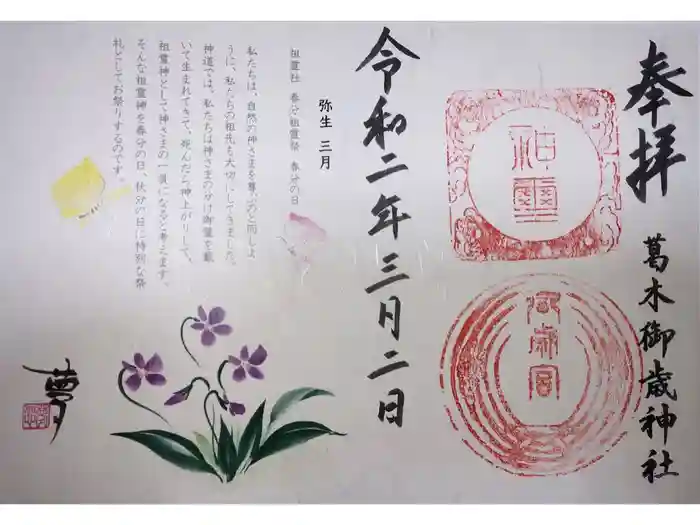 奉拝
葛木御歳神社
祖霊
御歳宮
令和二年三月二日
弥生 三月
祖霊社 春分祖霊祭 春分の日
私たちは、自然の神さまを尊ぶのと同じよ
うに、私たちの祖先も大切にしてきました。
神道では、私たちは神さまの分け御霊を戴
いて生まれてきて、死んだら神上がりして、
祖霊神として神さまの一員になると考えます。
そんな祖霊神を春分の日、秋分の日に特別な祭
礼としてお祭りするのです。
夢